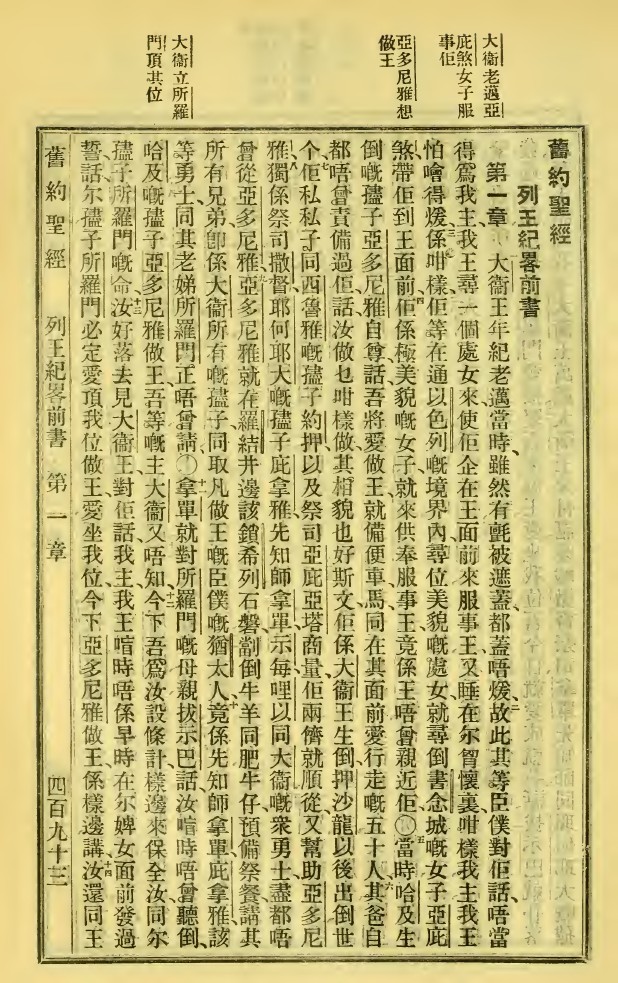 大衞老邁亞
庇煞女子服
事佢
亞多尼雅想
做王
大衞立所羅
門頂其位
舊約聖經
列王紀畧前書
第一章 大衞王年紀老邁當時、雖然有氈被遮蓋、都蓋唔煖、二故此其等臣僕對佢話、唔當
得爲我主我王尋一個處女來、使佢企在王面前來服事王、又睡在尔智懷裏、咁樣我主我王
怕會得煖、三係咁樣佢等在通以色列嘅境界內、尋位美貌嘅處女、就尋倒書念城嘅女子亞庇
煞、帶佢到王面前、四佢係極美貌嘅女子、就來供奉服事王、竟係王唔曾親近佢、〇五當時哈及生
倒嘅孻子亞多尼雅自尊、話、吾將愛做王、就備便車馬、同在其面前愛行走嘅五十人、六其爸自
都唔曾責備過佢、話、汝做乜咁樣做、其相貌也好斯文、佢係大衞王生倒押沙龍以後出倒世
个、七佢私私子同西魯雅嘅孻子約押、以及祭司亞庇亞塔商量、佢兩儕就順從又幫助亞多尼
雅、八獨係祭司撒督、耶何耶大嘅孻子庇拿雅、先知師拿單、示每、哩以、同大衞嘅衆勇士、盡都唔
曾從亞多尼雅、九亞多尼雅就在羅結井邊該鎖希列石磐、劏倒牛羊同肥牛仔預備祭餐、請其
所有兄弟、卽係大衞所有嘅孻子、同取凡做王嘅臣僕嘅猶太人、十竟係先知師拿單、庇拿雅、該
等勇士、同其老娣所羅門、正唔曾請、〇十一拿單就對所羅門嘅母親拔示巴話、汝喧時唔曾聽倒、
哈及嘅孻子亞多尼雅做王、吾等嘅主大衞又唔知、十二今下吾爲汝設條計樣邊來保全汝同尔
孻子所羅門嘅命、十三汝好落去見大衞王、對佢話、我主我王喧時唔係早時在尔婢女面前發過
誓、話、尔孻子所羅門必定愛頂我位做王、愛坐我位、今下亞多尼雅做王、係樣邊講、十四汝還同王
舊約聖經 列王紀畧前書 第一章 四百九十三